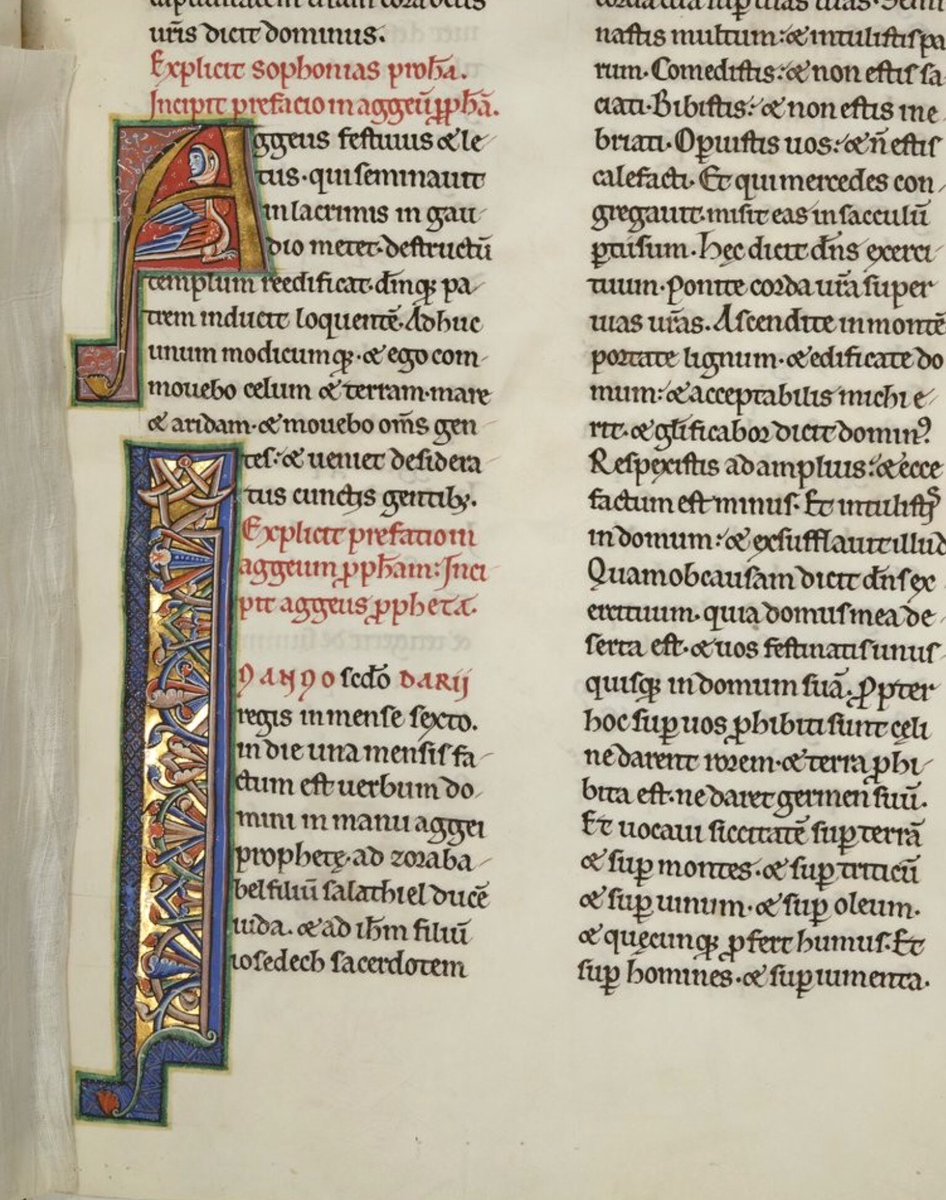 ur̄is dicit dominus.
Explicit sophonias proph̄a.
Incipit prefacio in aggeū p̱ph̄a.
Aggeus festiuus & le
tus. qui seminauit
in lacrimis in gau
dio metet. destructū
templum reedificat. dn̄mq; pa
trem inducit loquentē. Adhuc
unum modicumq;. & ego com
mouebo celum & terram. mare
& aridam. & mouebo om̄s gen
tes: & ueniet desidera
tus cunctis gentib;.
Explicit prefatio in
aggeum p̱ph̄am: Inci
pit aggeus p̱pheta.
IN ANNO scd̄o DARII
regis in mense sexto.
in die una mensis fa
ctum est uerbum do
mini in manu aggei
prophetę. ad zoraba
bel filiū salathiel ducē
iuda. & ad ih̄m filiū
iosedech sacerdotem
nastis multum: & intulistis pa
rum. Comedistis: & non estis sa
ciati. Bibistis: & non estis ine
briati. Op̱uistis uos: & n̄ estis
calefacti. Et qui mercedes con
gregauit. misit eas in sacculū
p̱tusum. Hęc dicit dn̄s exerci
tuum. Ponite corda ur̄a super
uias ur̄as. Ascendite in montē
portate lignum. & edificate do
mum: & acceptabilis michi e
rit. & gl̄ificabor dicit domin⁹.
Respexistis ad amplius: & ecce
factum est minus. Et intulistis
in domum: & exsufflaui illud
Quam ob causam dicit dn̄s ex
ercituum. quia domus mea de
serta est. & uos festinatis unus
quisq; in domum suā. P̱pter
hoc sup̱ uos p̱hibiti sunt cęli
ne darent rorem. & terra p̱hi
bita est. ne daret germen suū.
Et uocaui siccitatē sup̱ terrā
& sup̱ montes. & sup̱ triticū
& sup̱ uinum. & sup̱ oleum.
& quęcunq; p̱fert humus. Et
sup̱ homines. & sup̱ iumenta.